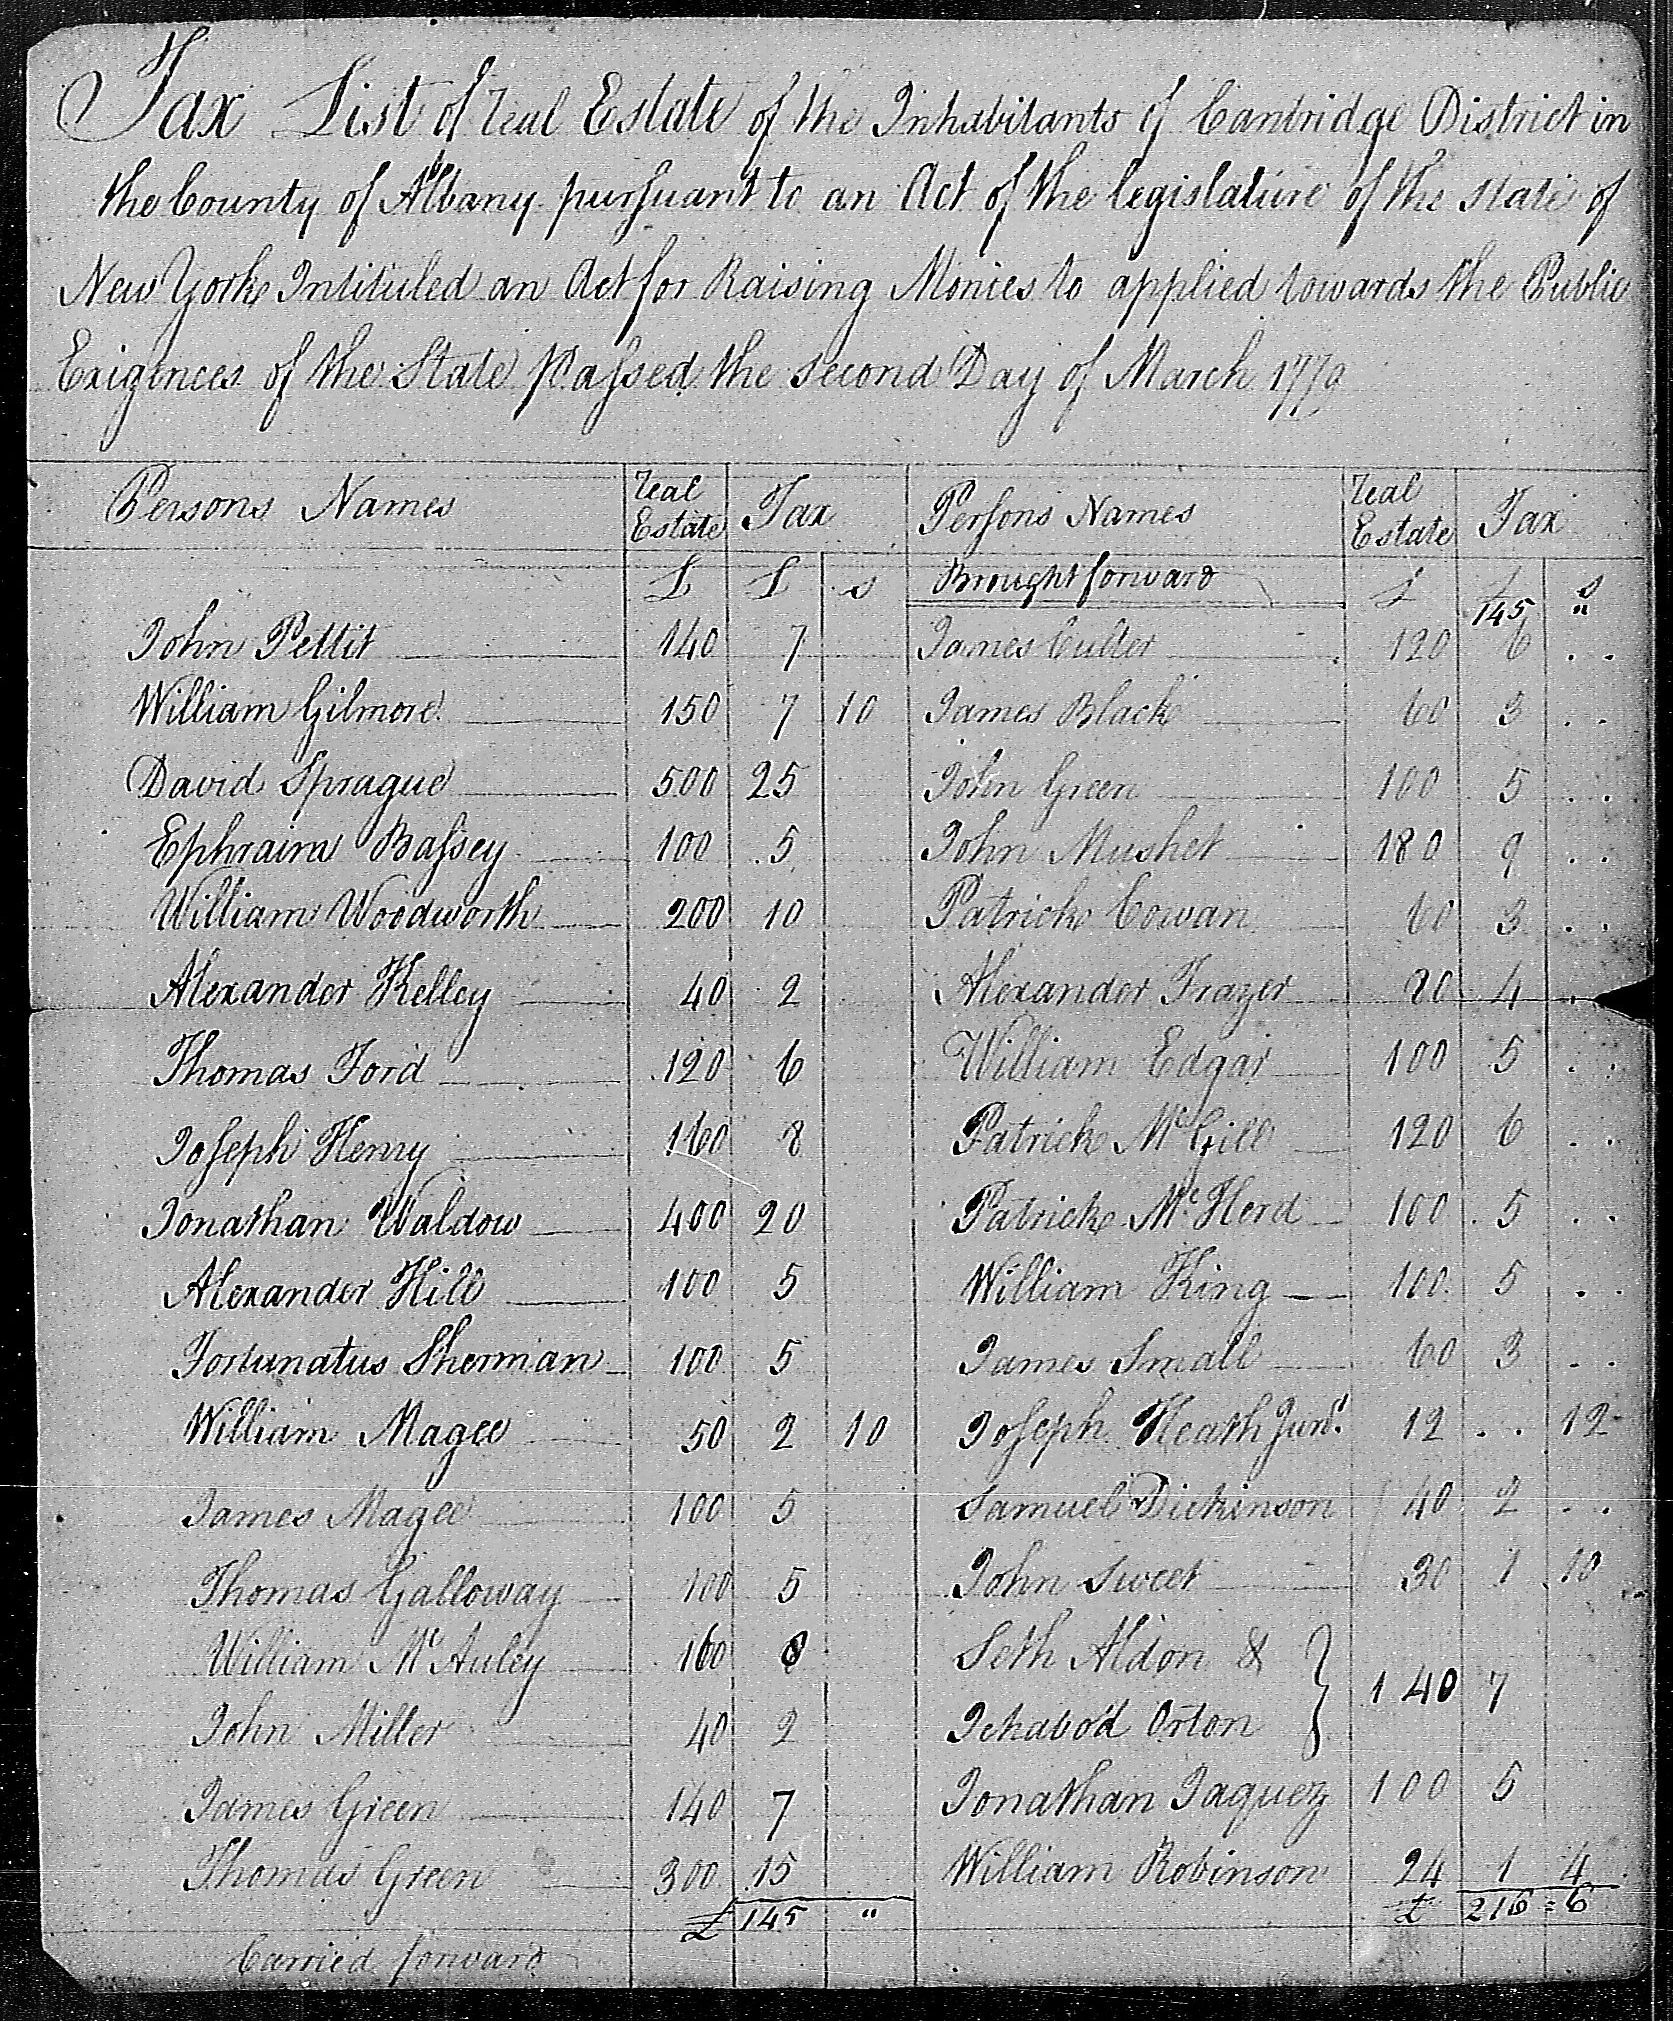 Tax List of real Estate of the Inhabitants of Cambridge District in
the County of Albany pursuant to an Act of the legislature of the State of
New York Intituled an Act for Raising Monies to applied towards the Public
Exigences of the State Passed the second Day of March 1779
Persons Names real Estate Tax Persons Names real Estate Tax
£ £ s Brought forward £ £ s
145 "
John Pettit 140 7 James Cutter 120 6 . .
William Gilmore 150 7 10 James Black 60 3 . .
David Sprague 500 25 John Green 100 5 . .
Ephraim Bassey 100 5 John Mushet 180 9 . .
William Woodworth 200 10 Patrick Cowan 60 3 . .
Alexander Kelley 40 2 Alexander Frazer 80 4 .
Thomas Ford 120 6 William Edgar 100 5 . .
Joseph Henry 160 8 Patrick McGill 120 6 . .
Jonathan Waldow 400 20 Patrick McHerd 100 5 . .
Alexander Hill 100 5 William King 100 5 . .
Fortunatus Sherman 100 5 James Small 60 3 . .
William Magee 50 2 10 Joseph Heath Junr 12 . . 12
James Magee 100 5 Samuel Dickinson 40 2 . .
Thomas Galloway 100 5 John Sweet 30 1 10
William McAuley 160 8 Seth Aldon &
John Miller 40 2 Ichabod Orton } 140 7
James Green 140 7 Jonathan Jaquez 100 5
Thomas Green 300 15 William Robinson 24 1 4
£ 145 " £ 216 = 6
Carried forward